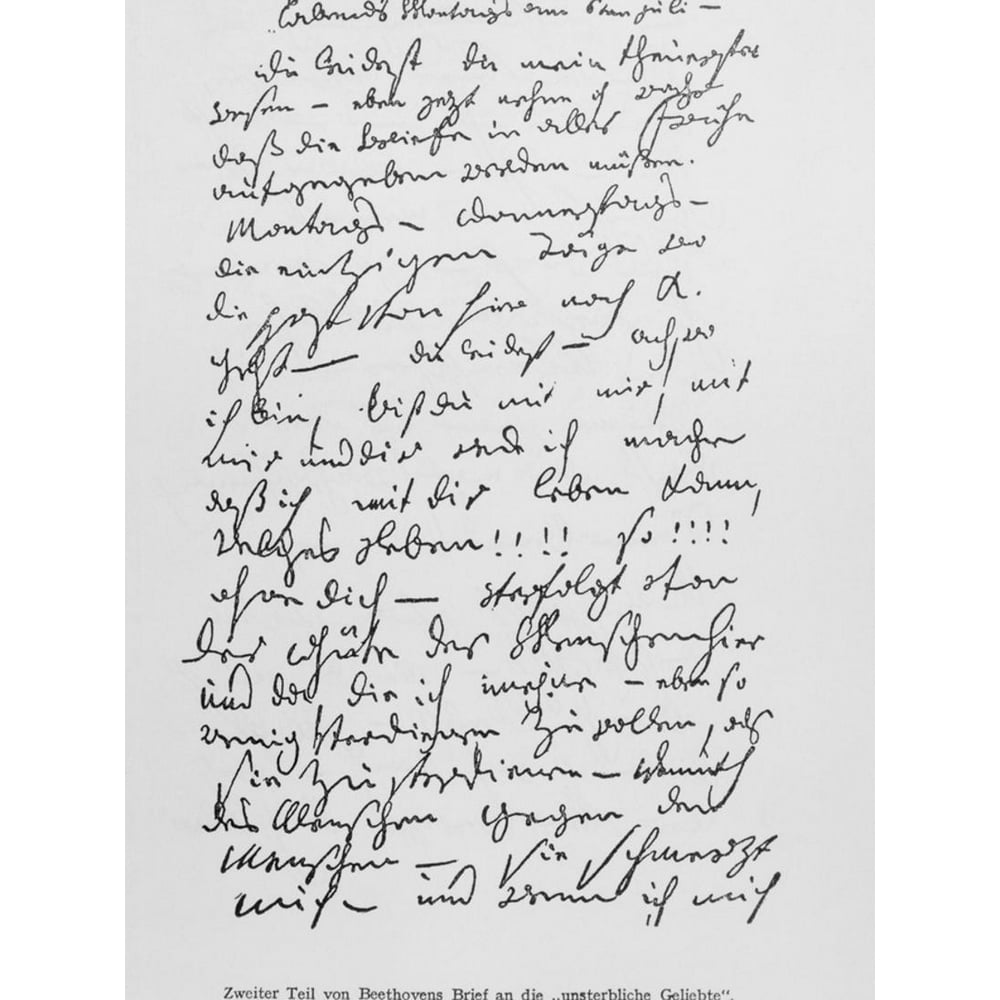 Abends Montags am 6ten juli —
du leidest du mein theuerstes
wesen — eben jezt nehme ich wahr
daß die Briefe in aller Frühe
aufgegeben werden müßen.
Montags — Donnerstags —
die einzigen Täge wo
die Post von hier nach K.
geht — du leidest — ach, wo
ich bin, bist du mit mir, mit
mir und dir rede ich mache
daß ich mit dir leben kann,
welches Leben!!!! so!!!!
ohne dich — verfolgt von
der Güte der Menschen hier
und da, die ich meyne — eben so
wenig verdienen zu wollen, als
sie zu verdienen — Demuth
des Menschen gegen den
Menschen — sie schmerzt
mich — und wenn ich mich
Zweiter Teil von Beethovens Brief an die „unsterbliche Geliebte“.